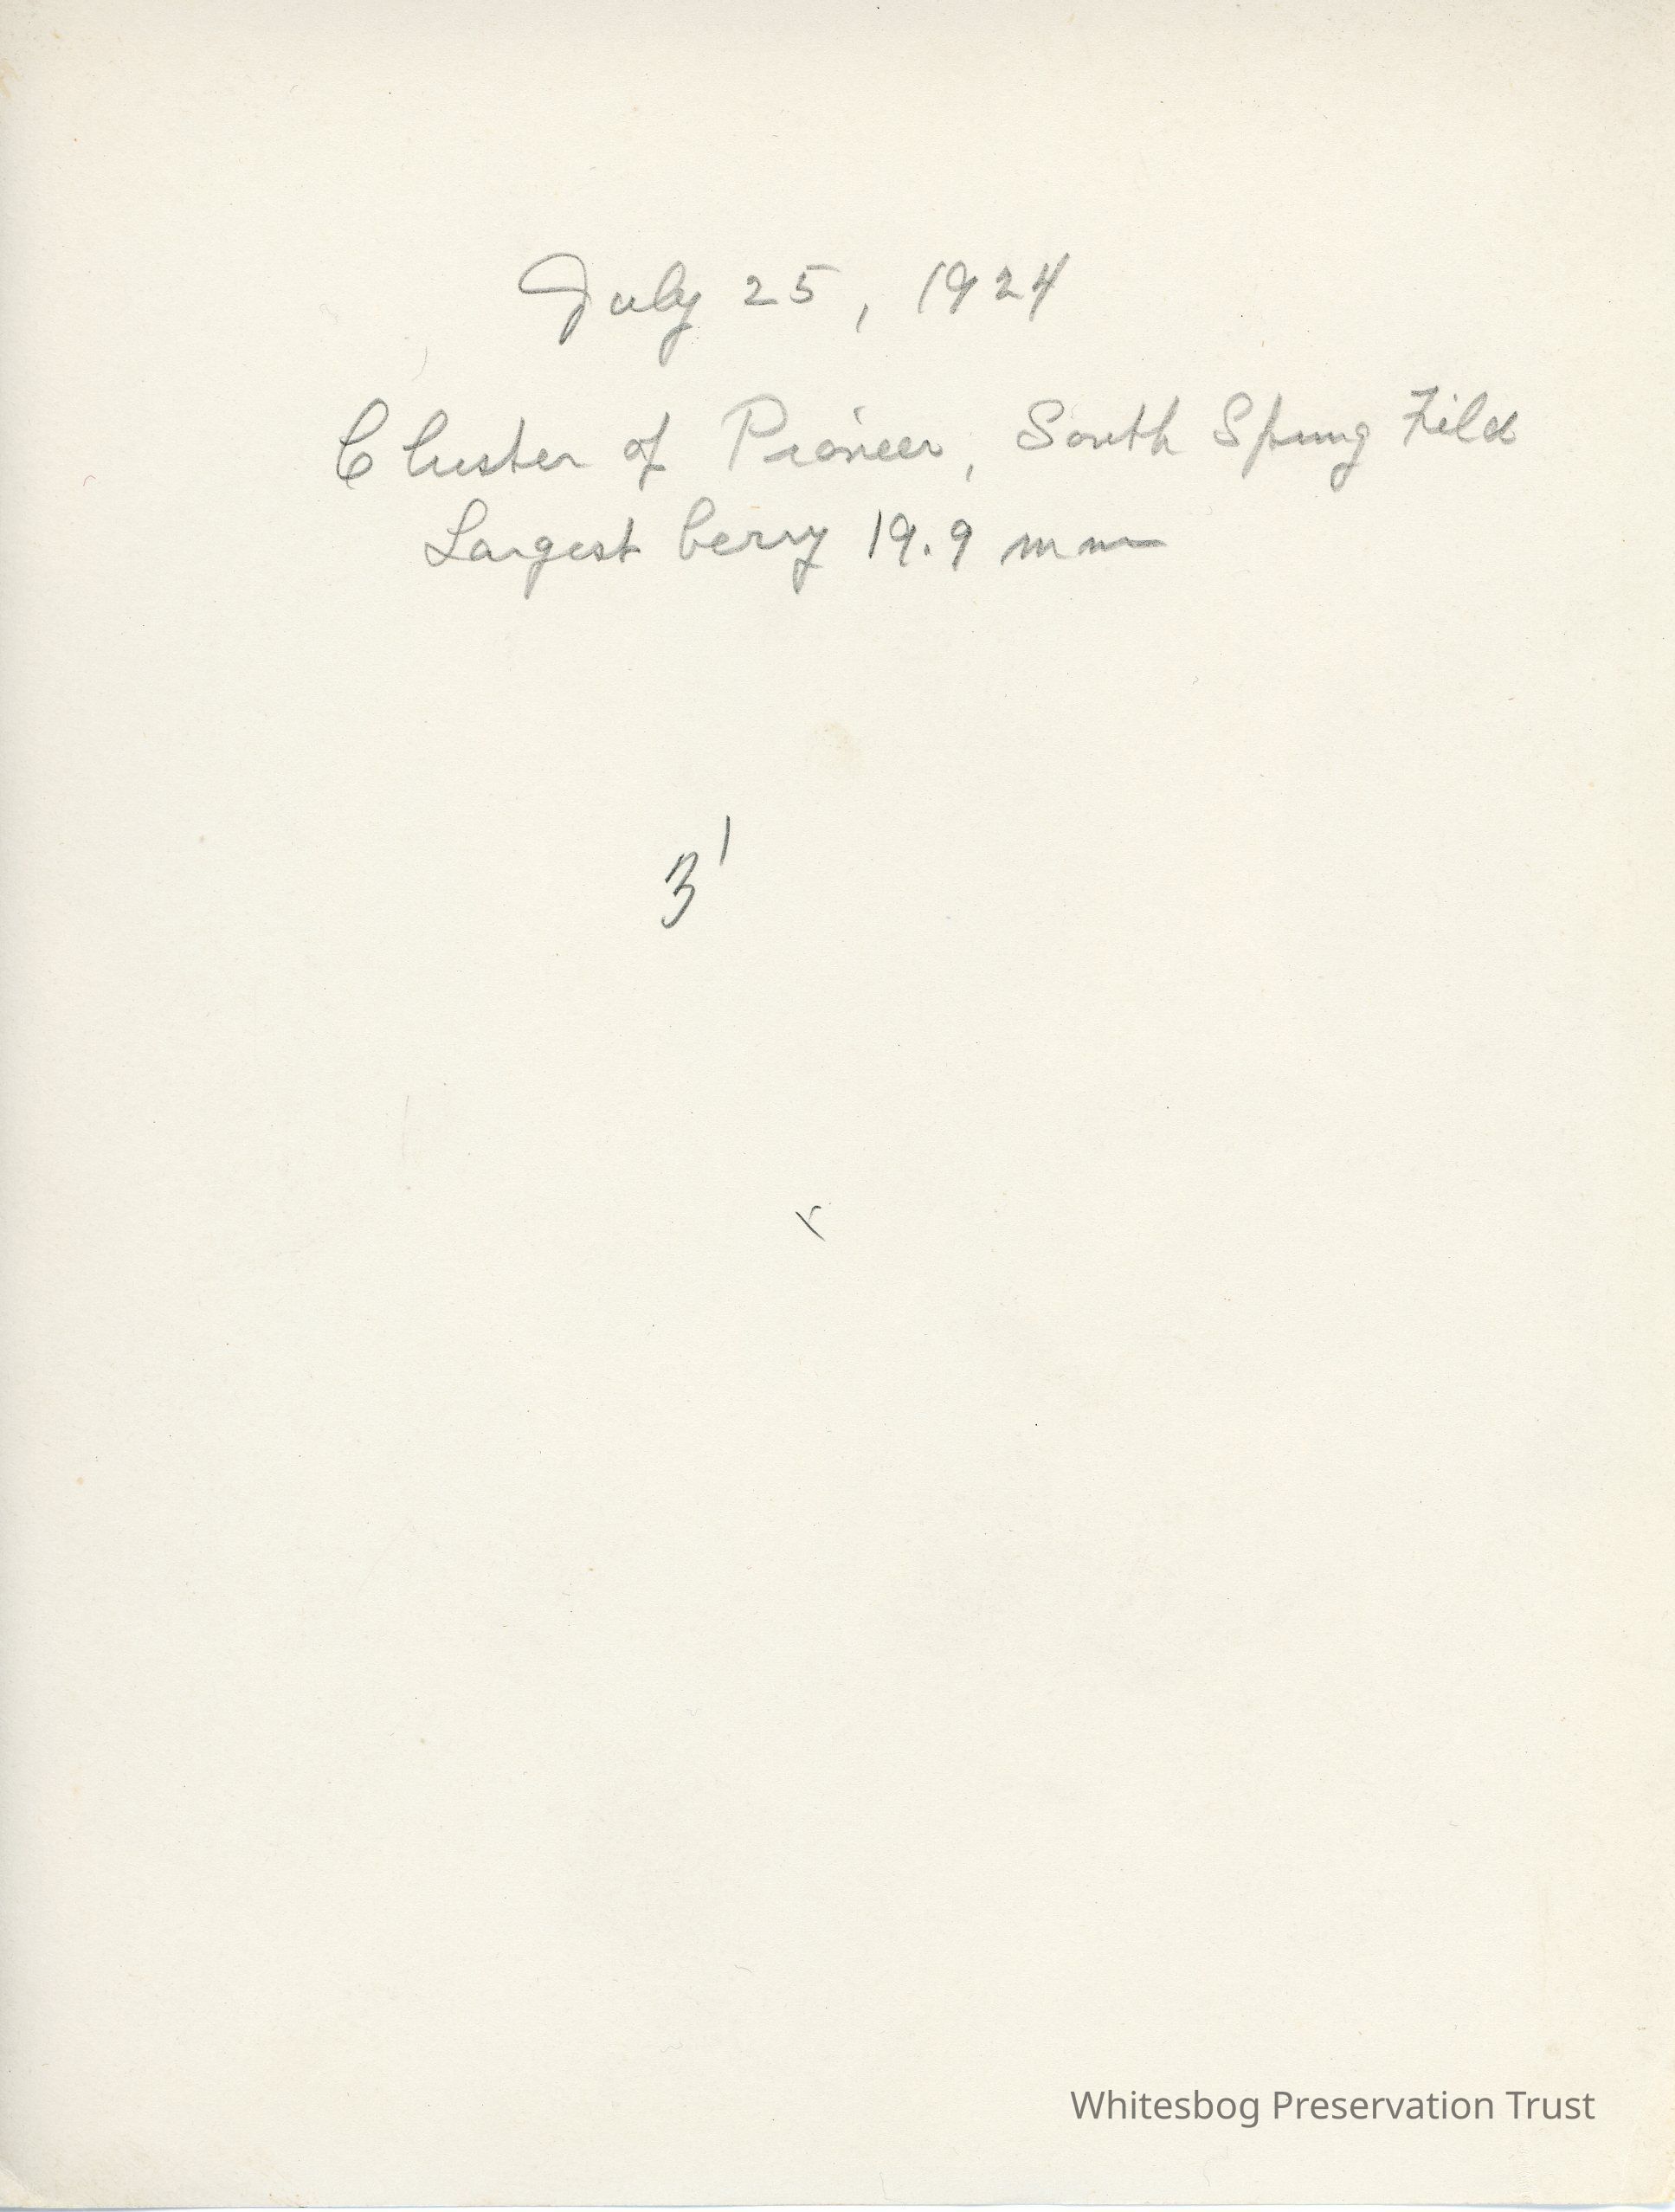 July 25, 1924
Cluster of Pioneer, South Spring Field
Largest berry 19.9 mm
3'
x
Whitesbog Preservation Trust